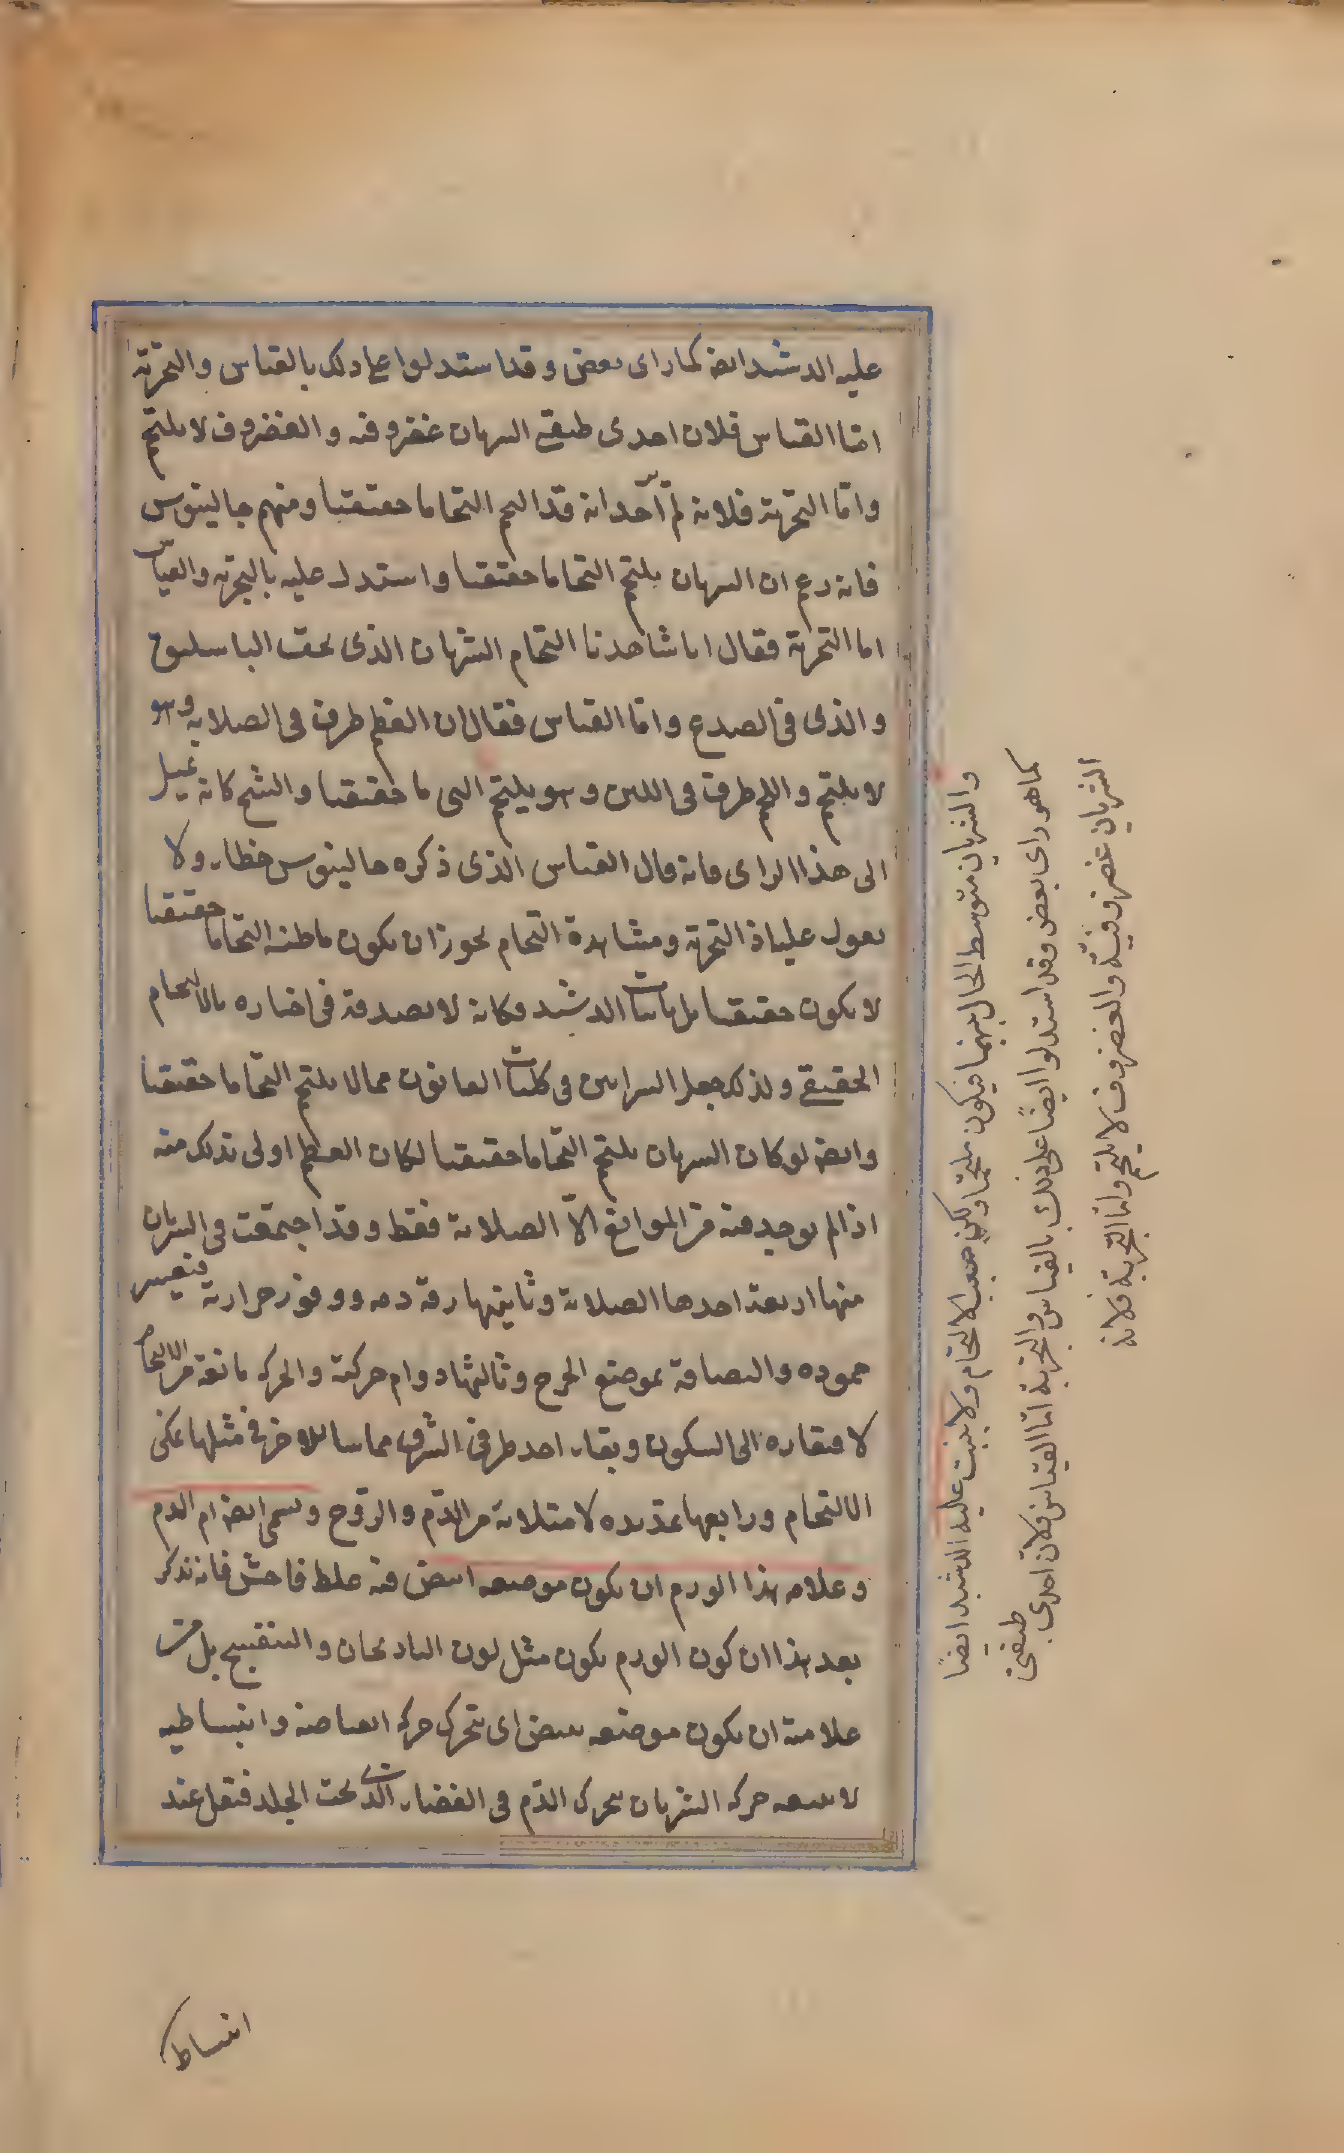 عليه الدشبد ايضا كما راى بعض وقد استدلوا على ذلك بالقياس والتجربة
اما القياس فلان احدى طبقتى الشريان غضروفية والغضروف لا يلتحم
واما التجربة فلانه لم ير احد انه قد التحم التحاما حقيقيا ومنهم جالينوس
فانه زعم ان الشريان يلتحم التحاما حقيقيا واستدل عليه بالتجربة والقياس
اما التجربة فقال انا شاهدنا التحام الشريان الذى تحت الباسليق
والذى فى الصدغ واما القياس فقال ان العظم طرف فى الصلابة وهو
لا يلتحم واللحم طرف فى اللين وهو يلتحم التحاما حقيقيا والشيخ كانه يميل
الى هذا الراى فانه قال القياس الذى ذكره جالينوس خطاء ولا
يعول على هذه التجربة ومشاهدة التحام يجوز ان يكون ما ظنه التحاما حقيقيا
لا يكون حقيقيا بل بانبات الدشبد وكانه لا يصدقه فى اخباره بالالتحام
الحقيقى ولذلك جعل الشرايين فى كليات القانون مما لا يلتحم التحاما حقيقيا
وايضا لو كان الشريان يلتحم التحاما حقيقيا لكان العظم اولى بذلك منه
اذ الم يوجد فيه من الموانع الا الصلابة فقط وقد اجتمعت فى الشريان
منها اربعة احدها الصلابة وثانيتها رقة دمه ووفور حرارته فيعسر
جموده والتصاقه بموضع الجرح وثالثها دوام حركته والحركة مانعة من الالتحام
لافتقاره الى السكون وبقاء احد طرفى الشق مماسا للاخر فى مثلها يمكن
الالتحام ورابعها تمدده لامتلائه من الدم والروح ويسمى ايضا ام الدم
وعلامة هذا الورم ان يكون موضعه ابيض فيه غلط فاحش فانه نذكر
بعد هذا ان كون الورم يكون مثل لون الباذنجان والبنفسج بل من
علامته ان يكون موضعه ينبض اى يتحرك حركة انقباضية وانبساطية
لا يتبعه حركة الشريان بتحرك الدم فى الفضاء الذى تحت الجلد فيقل عند
انبساط
والشريان متوسط الحال بينهما فيكون ملتحما ولكن صعب الالتحام ولا ينبت عليه الدشبد ايضاً
كما هو راى بعض وقد استدلوا ايضاً على ذلك بالقياس والتجربة اما القياس فلان احدى طبقتى
الشريان غضروفيّة والغضروف لا يلتحم واما التجربة فلانه